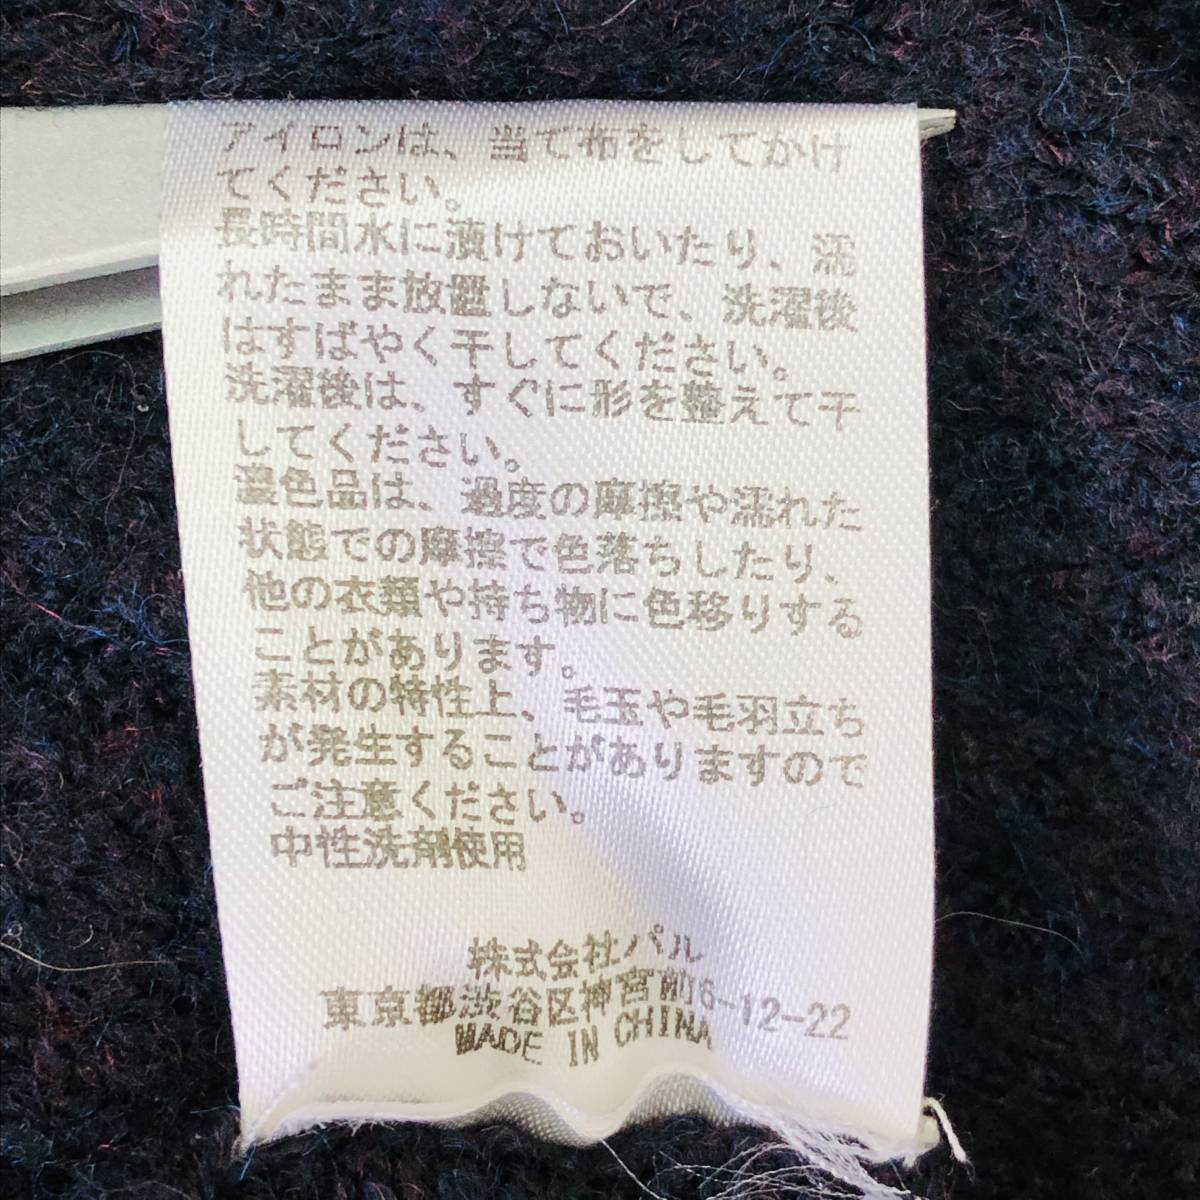 アイロンは、当て布をしてかけ
てください。
長時間水に漬けておいたり、濡
れたまま放置しないで、洗濯後
はすばやく干してください。
洗濯後は、すぐに形を整えて干
してください。
濃色品は、過度の摩擦や濡れた
状態での摩擦で色落ちしたり、
他の衣類や持ち物に色移りする
ことがあります。
素材の特性上、毛玉や毛羽立ち
が発生することがありますので
ご注意ください。
中性洗剤使用
株式会社パル
東京都渋谷区神宮前6-12-22
MADE IN CHINA